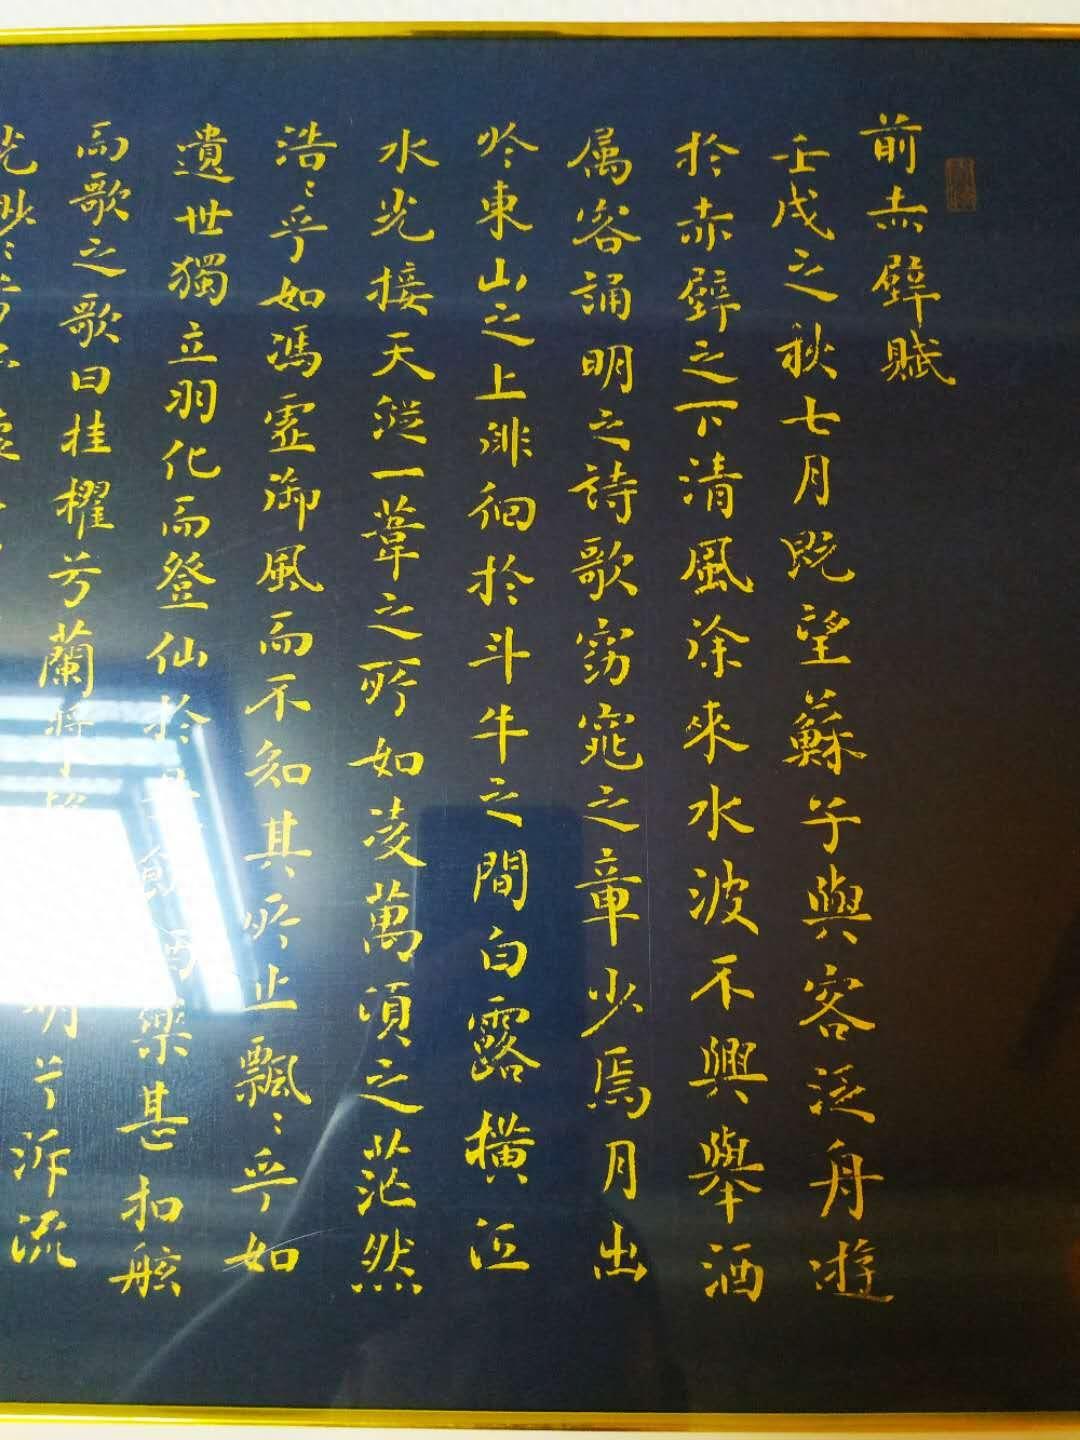 前赤壁賦
壬戌之秋七月既望蘇子與客泛舟遊
於赤壁之下清風徐來水波不興舉酒
属客誦明之詩歌窈窕之章少焉月出
於東山之上徘徊於斗牛之間白露橫江
水光接天從一葦之所如凌萬頃之茫然
浩〻乎如馮虛御風而不知其所止飄〻乎如
遺世獨立羽化而登仙於酒樂甚扣舷
而歌之歌曰桂櫂兮蘭明兮泝流
光